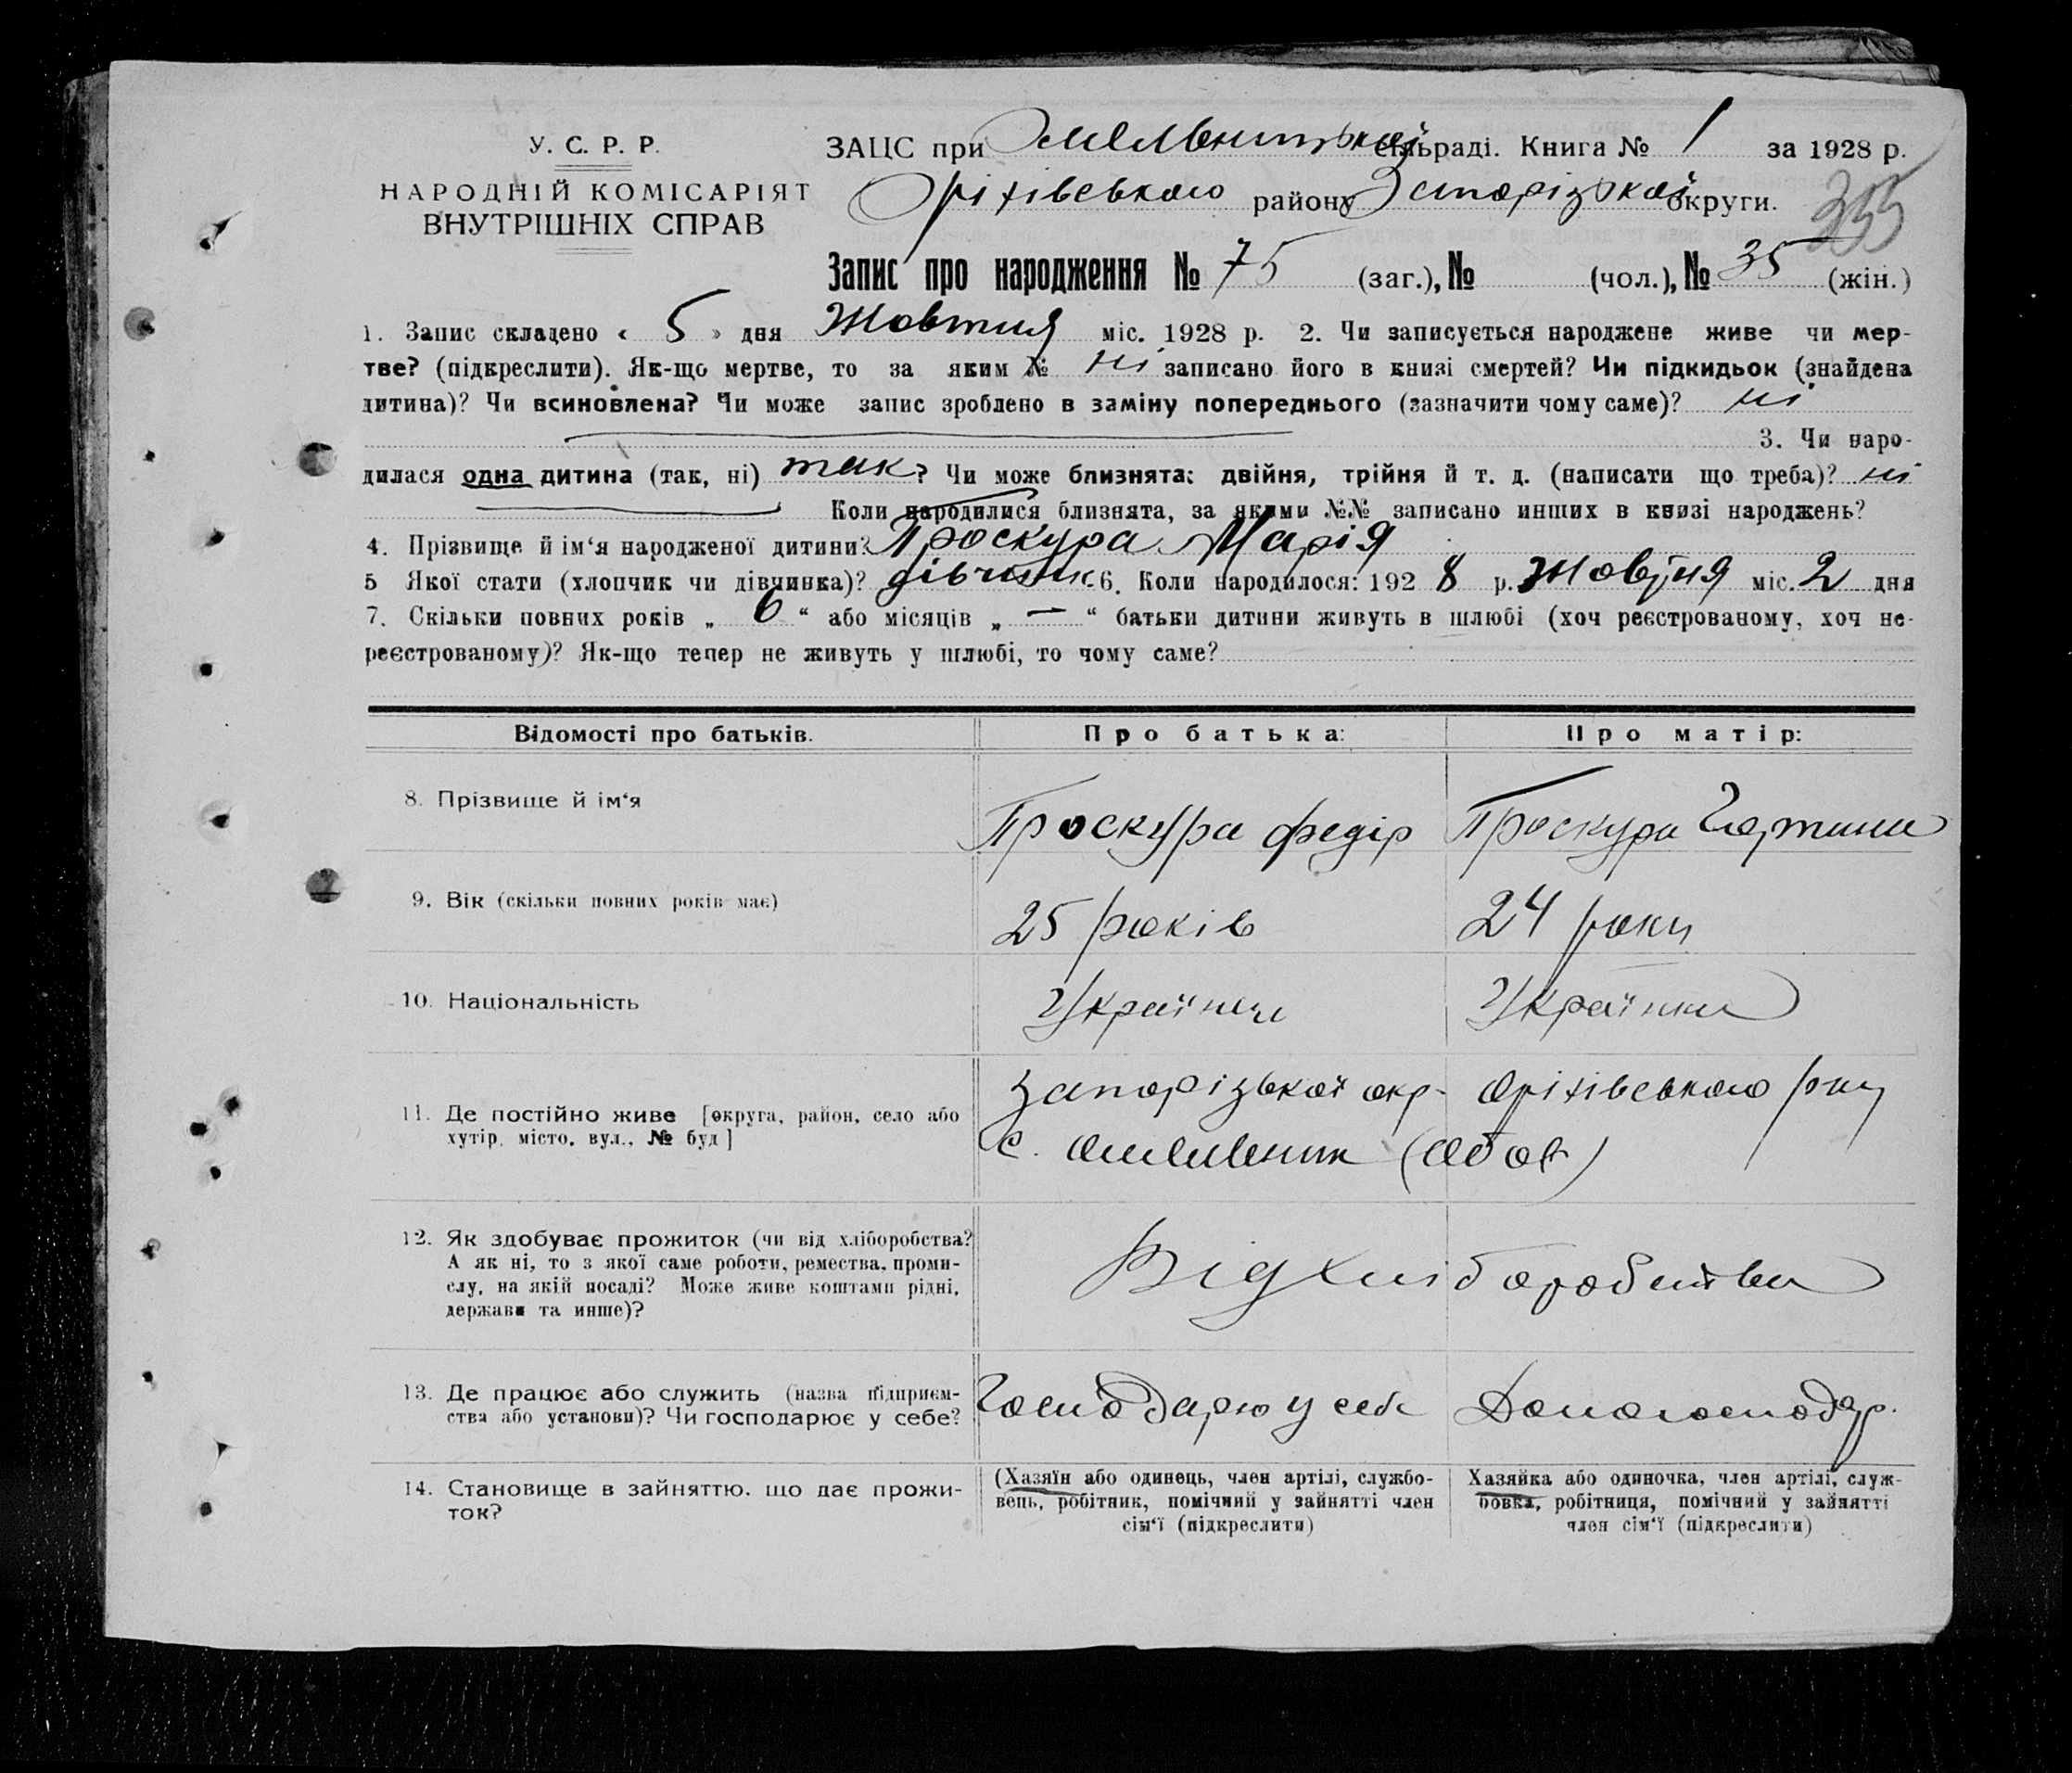 У. С. Р. Р.
НАРОДНІЙ КОМІСАРІЯТ
ВНУТРІШНІХ СПРАВ
ЗАЦС при Омельницькій сільраді. Книга № 1 за 1928 р.
Оріхівського району Запорізької округи.
355
Запис про народження № 75 (заг.), № (чол.), № 35 (жін.)
1. Запис складено « 5 » дня Жовтня міс. 1928 р. 2. Чи записується народжене живе чи мер-
тве? (підкреслити). Як-що мертве, то за яким № ні записано його в книзі смертей? Чи підкидьок (знайдена
дитина)? Чи всиновлена? Чи може запис зроблено в заміну попереднього (зазначити чому саме)? ні
3. Чи наро-
дилася одна дитина (так, ні) так? Чи може близнята: двійня, трійня й т. д. (написати що треба)? ні
Коли народилися близнята, за якими №№ записано инших в книзі народжень?
4. Прізвище й ім‘я народженої дитини? Проскура Марія
5 Якої стати (хлопчик чи дівчинка)? дівчинк 6. Коли народилося: 1928 р. Жовтня міс. 2 дня
7. Скільки повних років „ 6 “ або місяців „ — “ батьки дитини живуть в шлюбі (хоч реєстрованому, хоч не-
реєстрованому)? Як-що тепер не живуть у шлюбі, то чому саме?
Відомості про батьків. Про батька: Про матір:
8. Прізвище й ім‘я Проскура Федір Проскура
9. Вік (скільки повних років має) 25 років 24 роки
10. Національність Українець Українка
11. Де постійно живе [округа, район, село або Запорізької окр. Оріхівського р-ну
хутір, місто, вул., № буд] с. Омельник (обоє)
12. Як здобуває прожиток (чи від хліборобства? Від хліборобства
А як ні, то з якої саме роботи, ремества, проми-
слу, на якій посаді? Може живе коштами рідні,
держави та инше)?
13. Де працює або служить (назва підприєм- Господарює у себе Домогосподар.
ства або установи)? Чи господарює у себе?
14. Становище в зайняттю, що дає прожи- (Хазяїн або одинець, член артілі, службо- Хазяйка або одиночка, член артілі, служ-
ток? вець, робітник, помічний у зайнятті член бовка, робітниця, помічний у зайнятті
сім‘ї (підкреслити) член сім‘ї (підкреслити)